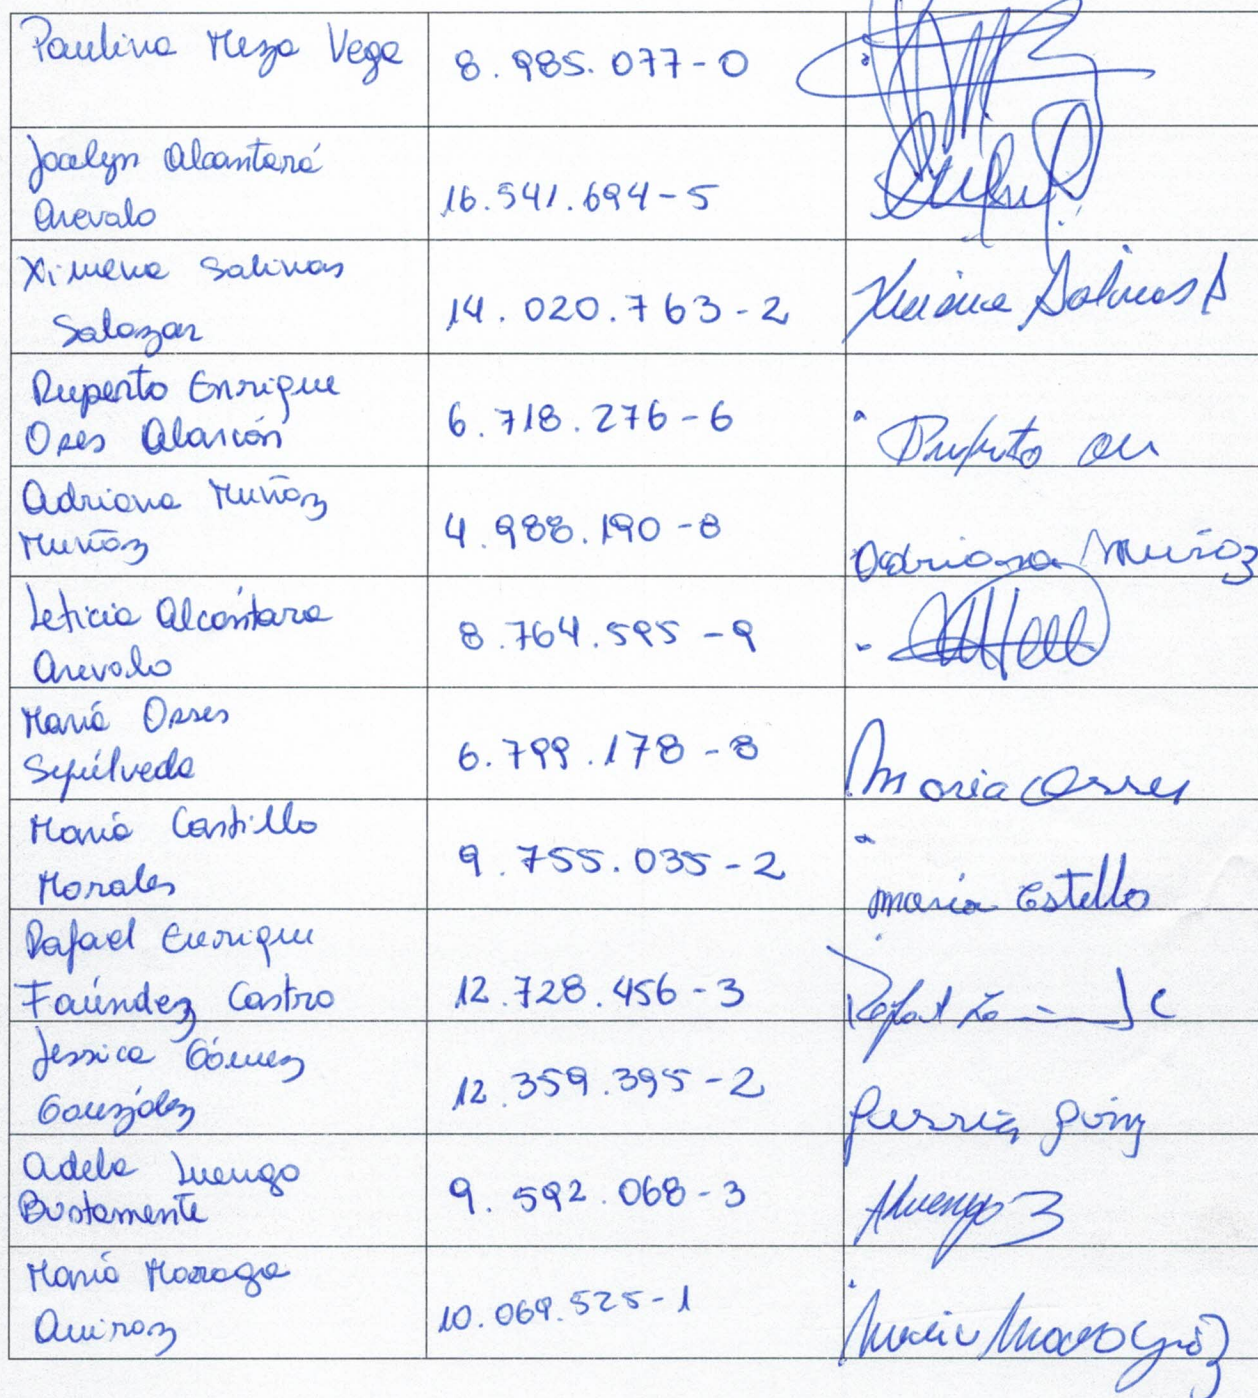 Paulina Meza Vega 8.985.077-0
Jocelyn Alcantará
Arevalo 16.541.694-5
Ximena Salinas
Salazar 14.020.763-2 Ximena Salinas S
Ruperto Enrique
Oses Alarcón 6.718.276-6 Ruperto
Adriana Muñoz
Muñoz 4.988.190-8 Adriana Muñoz
Leticia Alcántara
Arevalo 8.764.595-9
María Osses
Sepúlveda 6.799.178-8 Maria Osses
María Castillo
Morales 9.755.035-2 maria Castillo
Rafael Enrique
Faúndez Castro 12.728.456-3 Rafael
Jessica Gómez
González 12.359.395-2 Jessica
Adela Luengo
Bustamente 9.592.068-3 ALuengo B
María Moraga
Quiroz 10.069.525-1